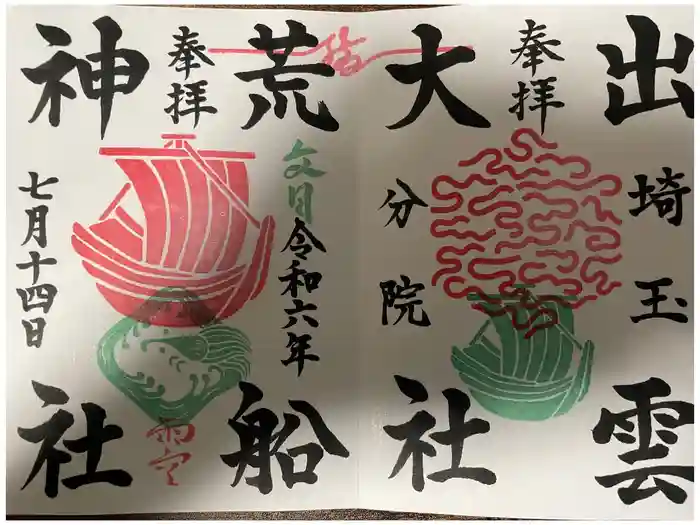 出雲
奉拝
埼玉
大社
分院
結
荒船
奉拝
文月
令和六年
神社
七月十四日
雨空